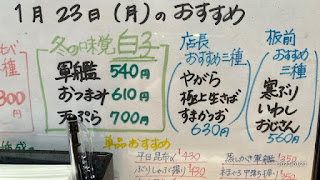 1月23日(月)のおすすめ
冬の味覚 白子
軍艦 540円
おつまみ 610円
天ぷら 700円
店長
おすすめ三種
やがら
極上生さば
すまかつお
630円
板前
おすすめ
三種
寒ぶり
いわし
おじさん
560円
種
300円
単品おすすめ
平日昆布〆 ¥430